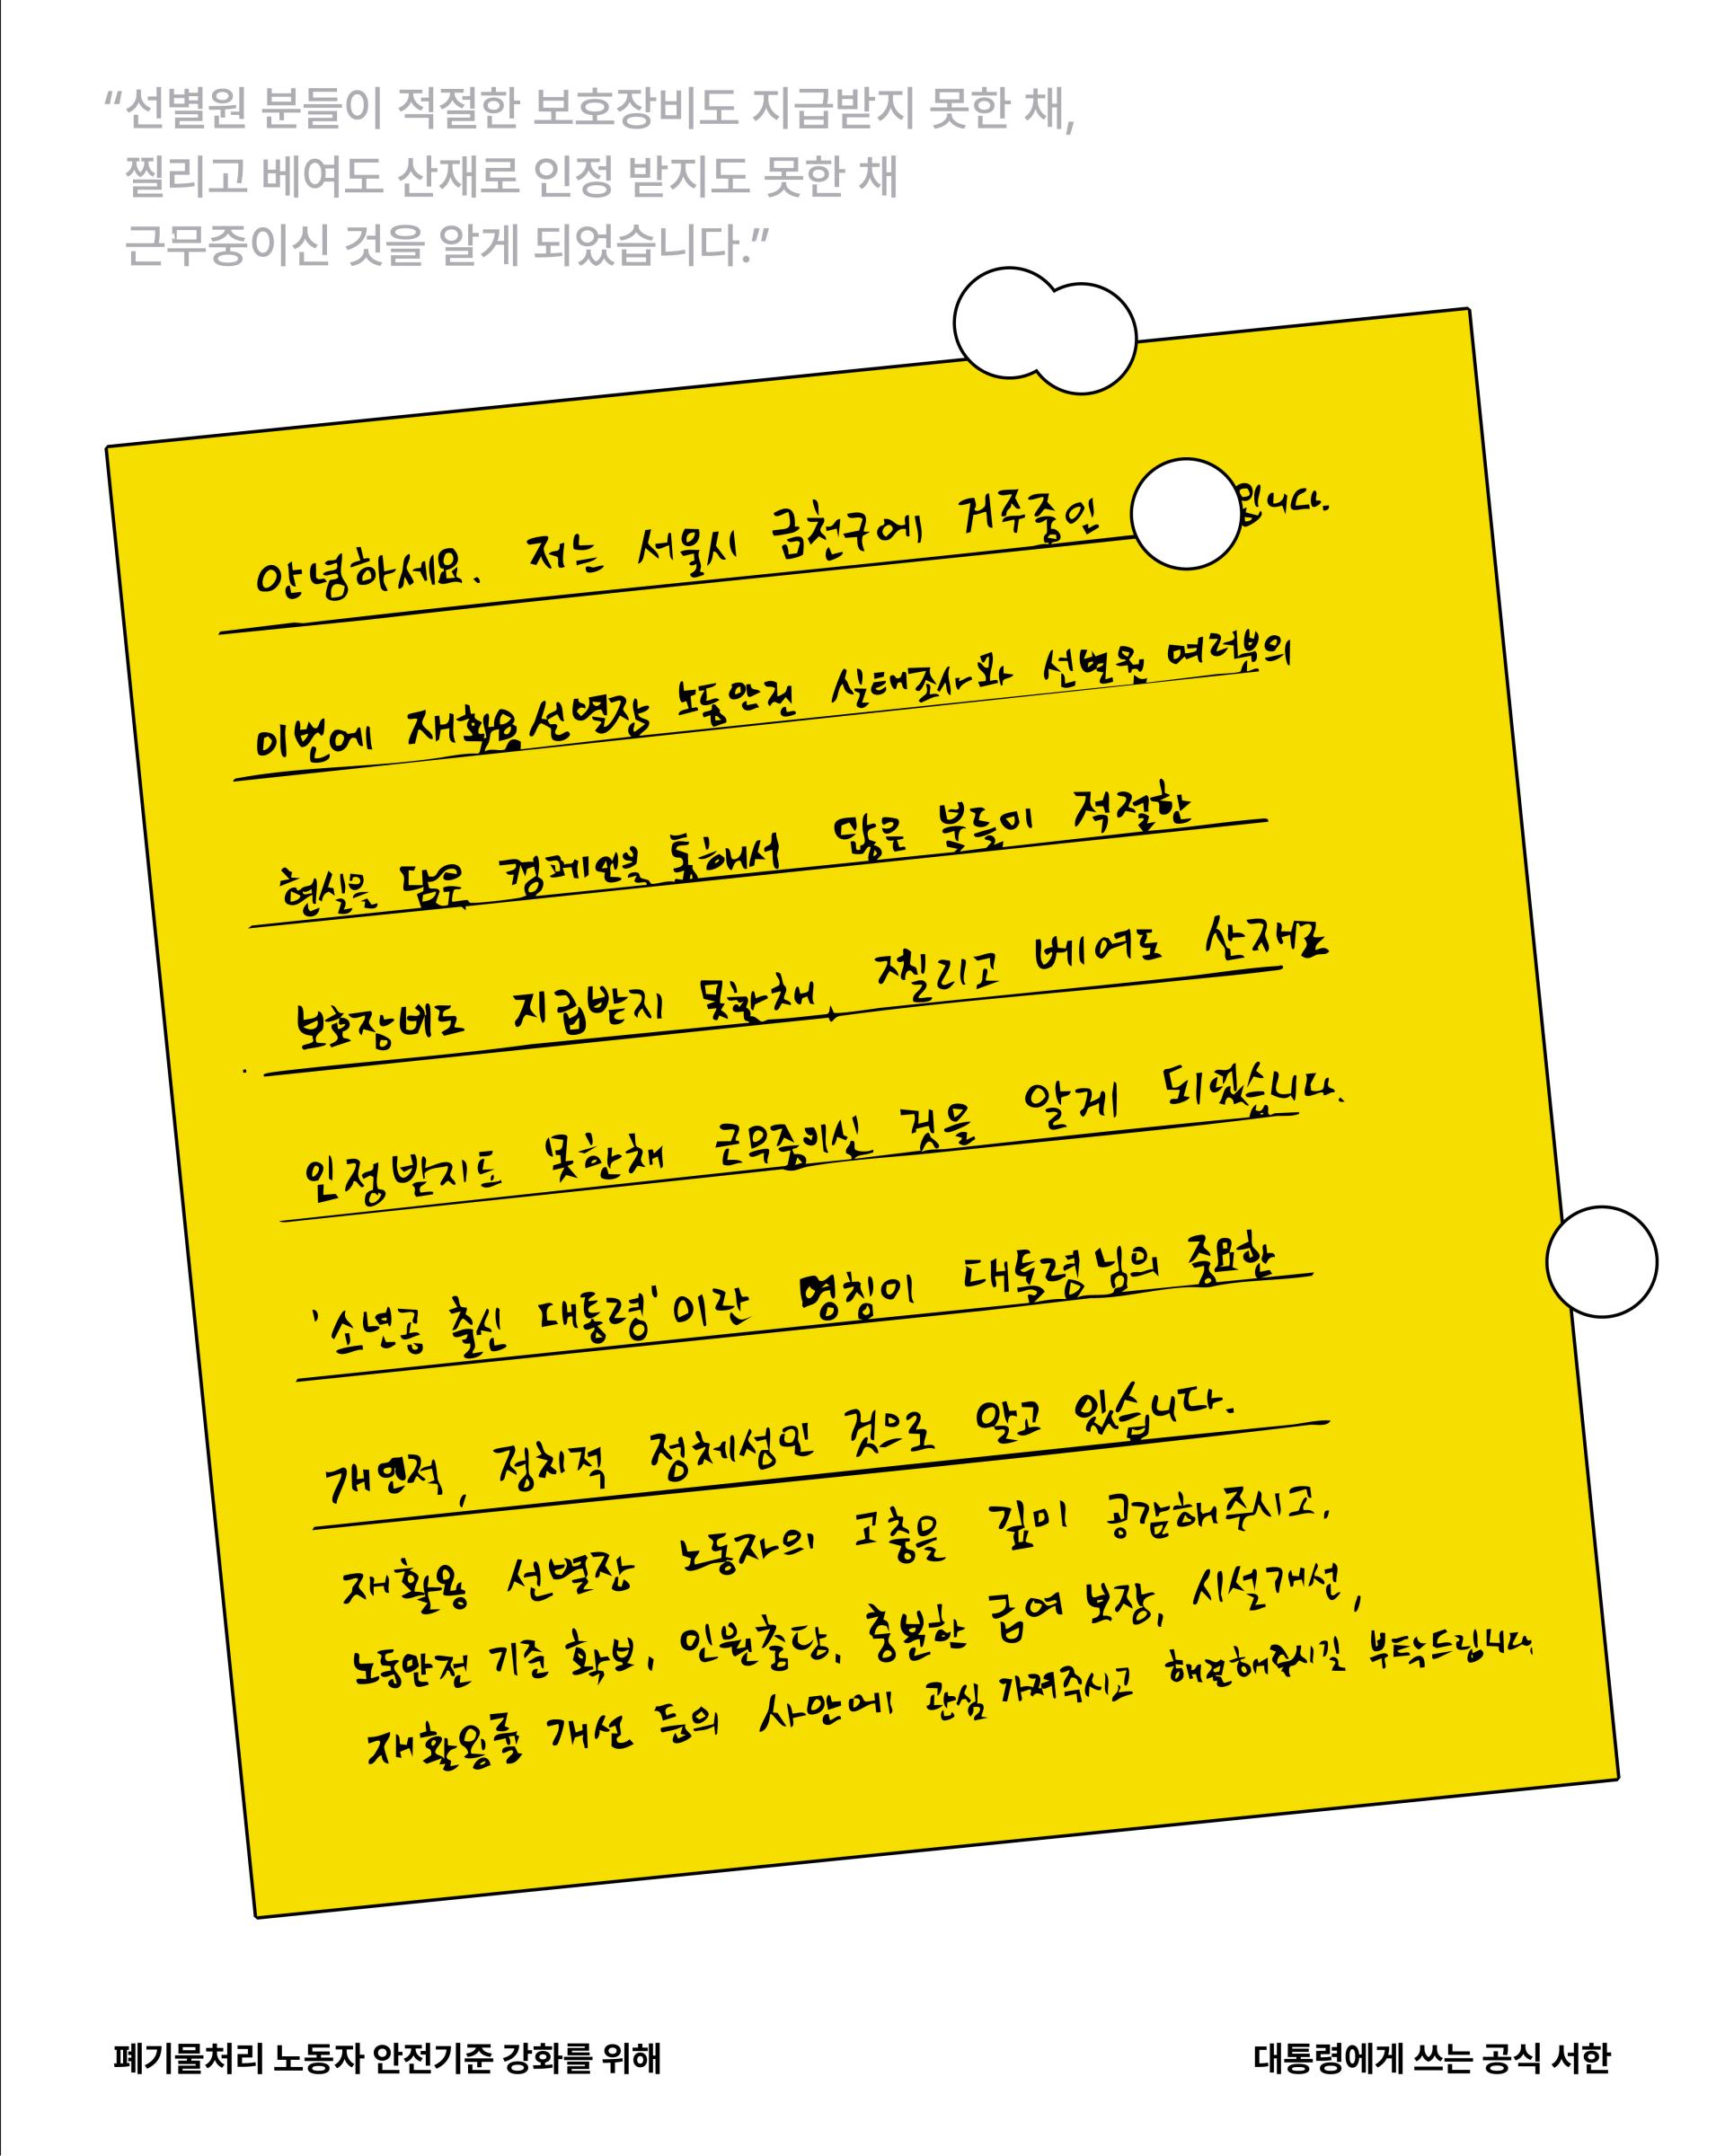 “선별원 분들이 적절한 보호장비도 지급받지 못한 채,
찔리고 베여도 산재로 인정 받지도 못한 채
근무중이신 것을 알게 되었습니다.”
안녕하세요. 저는 서울시 금천구에 거주중인 입니다.
이번에 재활용선별장 노동안전 실태조사와 선별원 여러분의
현실을 담은 캠페인을 통해서 많은 분들이 적절한
보호장비도 지급받지 못한채, 찔리고 베여도 산재로
인정받지도 못한채 근무중이신 것을 알게 되었습니다.
'소년공 출신 대통령'이란 명칭이 대통령님의 중요한
개인적, 정치적 정체성인 것으로 알고 있습니다.
재활용 선별장 노동자의 고충을 깊이 공감해주시고,
노동안전 기준 확보, 인원충당, 충분한 급여 보장, 시설개선,
재활용품 개선 등의 사안에 관심 가져주시고 해결해주시길 부탁드립니다.
폐기물처리 노동자 안전기준 강화를 위해
대통령에게 쓰는 공식 서한